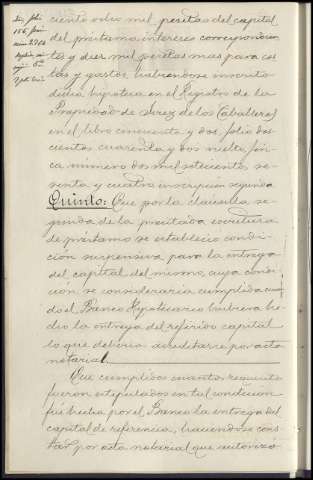 ciento ocho mil pesetas del capital
del préstamo intereses correspondien
tes y diez mil pesetas mas para cos
tas y gastos, habiendose inscrito
dicha hipoteca en el Registro de la
Propiedad de Jerez de los Caballeros
en el libro cincuenta y dos, folio dos
cientos cuarenta y dos vuelto, fin
ca número dos mil setecientos se
senta y cuatro inscripción segunda
Quinto: Que por la cláusula se
gunda de la precitada escritura
de préstamo se estableció condi
ción suspensiva para la entrega
del capital del mismo, cuya condi
ción se consideraria cumplida cuan
do el Banco Hipotecario hubiera he
cho la entrega del referido capital
lo que deberia acreditarse por acta
notarial.
Que cumplidos cuantos requisitos
fueron estipulados en tal condición
fué hecha por el Banco la entrega del
capital de referencia, haciendose cons
tar por acta notarial que autorizó